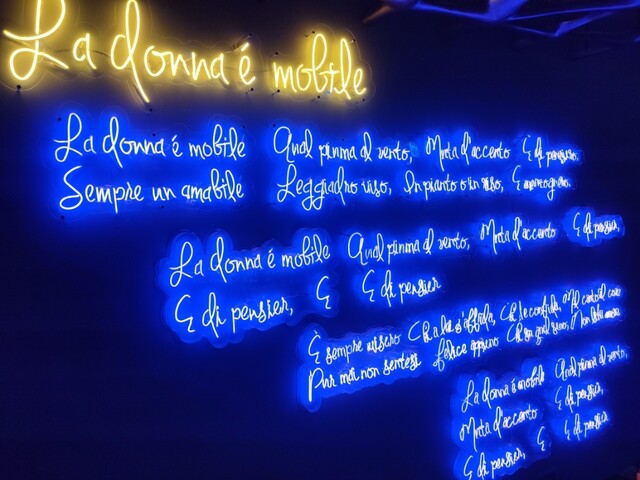 La donna é mobile
La donna é mobile Qual piuma al vento, Muta d'accento E di pensiero.
Sempre un amabile Leggiadro viso, In pianto o in riso, È menzognero.
La donna é mobile Qual piuma al vento, Muta d'accento E di pensier,
E di pensier, E E di pensier
È sempre misero Chi a lei s'affida, Chi le confida, Mal cauto il core
Pur mai non sentesi felice appieno Chi su quel seno, Non liba amore
La donna é mobile Qual piuma al vento,
Muta d'accento E di pensier,
E di pensier, E E di pensier